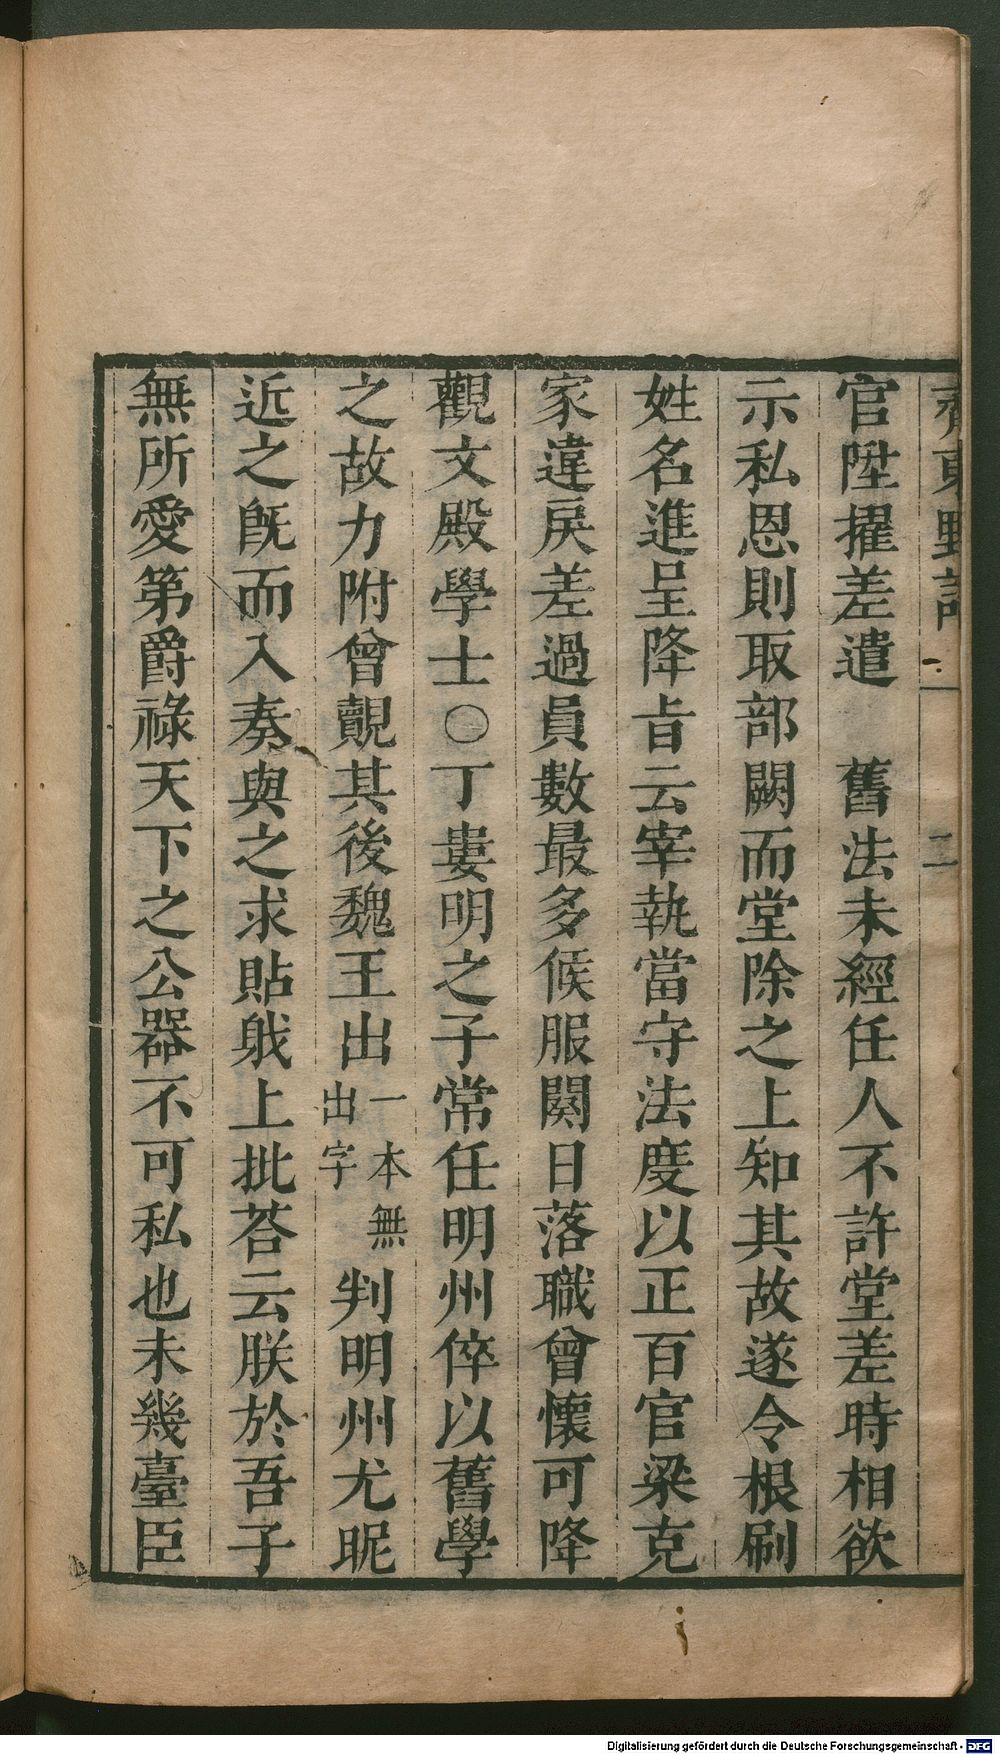 齊東野語 一 二
官陞擢差遣　舊法未經任人不許堂差時相欲
示私恩則取部闕而堂除之上知其故遂令根刷
姓名進呈降旨云宰執當守法度以正百官梁克
家違戾差過員數最多候服闋日落職曾懷可降
觀文殿學士〇丁婁明之子常任明州倅以舊學
之故力附曾覿其後魏王出一本無出字判明州尤昵
近之旣而入奏與之求貼䏿上批荅云朕於吾子
無所愛第爵祿天下之公器不可私也未幾臺臣
Digitalisierung gefördert durch die Deutsche Forschungsgemeinschaft - DFG